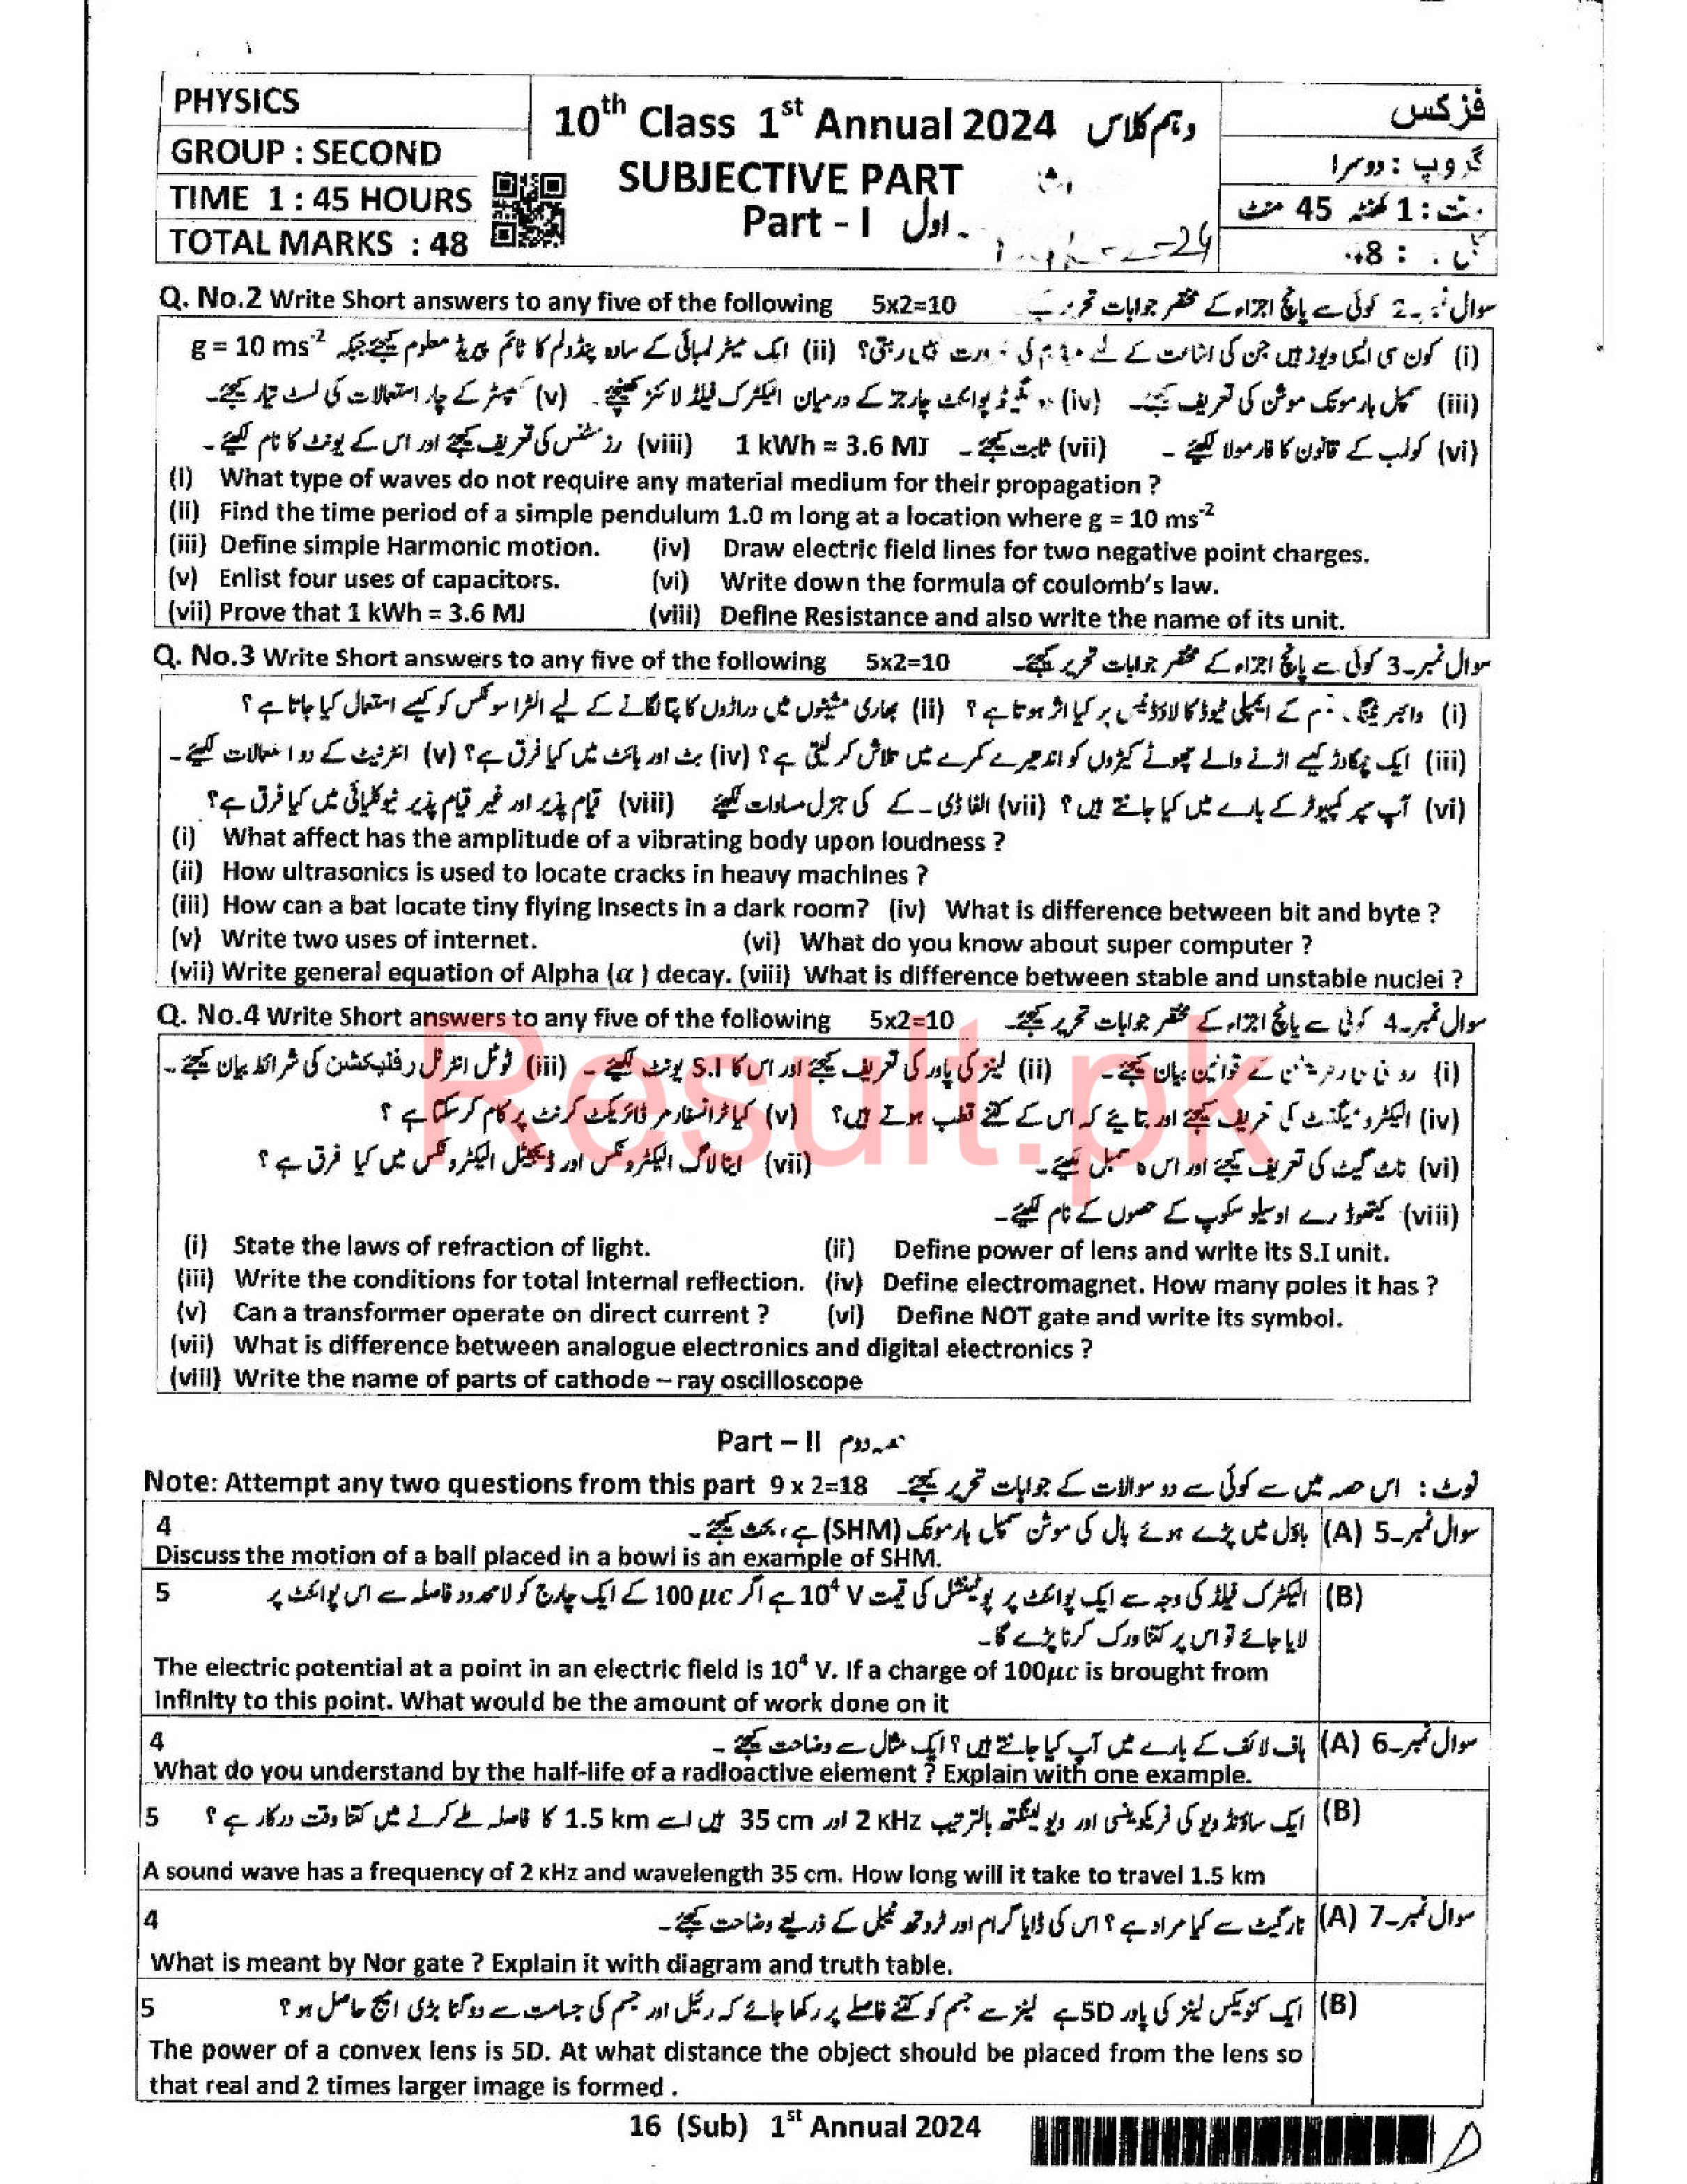 PHYSICS
GROUP : SECOND
TIME 1 : 45 HOURS
TOTAL MARKS : 48
10th Class 1st Annual 2024 دہم کلاس
SUBJECTIVE PART
Part - I اول
فزکس
گروپ : دوسرا
1 گھنٹہ 45 منٹ
Q. No.2 Write Short answers to any five of the following 5x2=10 سوال 2 کوئی سے پانچ اجزاء کے مختصر جوابات تحریر
(i) کون سی ایسی ویوز ہیں جن کی اشاعت کے لئے کی نہیں رہتی؟ (ii) ایک میٹر لمبائی کے سادہ پنڈولم کا ٹائم پیریڈ معلوم کیجئے جبکہ g = 10 ms-2
(iii) سمپل ہارمونک موشن کی تعریف کیجئے۔ (iv) دو نیگیٹو پوائنٹ چارجز کے درمیان الیکٹرک فیلڈ لائنز کھینچئے۔ (v) کپیسٹر کے چار استعمالات کی لسٹ تیار کیجئے۔
(vi) کولمب کے قانون کا فارمولا لکھئے۔ (vii) ثابت کیجئے۔ 1 kWh = 3.6 MJ (viii) رزسٹنس کی تعریف کیجئے اور اس کے یونٹ کا نام لکھئے۔
(i) What type of waves do not require any material medium for their propagation ?
(ii) Find the time period of a simple pendulum 1.0 m long at a location where g = 10 ms-2
(iii) Define simple Harmonic motion. (iv) Draw electric field lines for two negative point charges.
(v) Enlist four uses of capacitors. (vi) Write down the formula of coulomb's law.
(vii) Prove that 1 kWh = 3.6 MJ (viii) Define Resistance and also write the name of its unit.
Q. No.3 Write Short answers to any five of the following 5x2=10 سوال نمبر۔3 کوئی سے پانچ اجزاء کے مختصر جوابات تحریر کیجئے۔
(i) جسم کے ایمپلی ٹیوڈ کا لاؤڈنیس پر کیا اثر ہوتا ہے؟ (ii) بھاری مشینوں میں دراڑوں کا پتا لگانے کے لیے الٹراسونکس کو کیسے استعمال کیا جاتا ہے؟
(iii) ایک چمگادڑ کیسے اڑنے والے چھوٹے کیڑوں کو اندھیرے کمرے میں تلاش کر لیتی ہے؟ (iv) بٹ اور بائٹ میں کیا فرق ہے؟ (v) انٹرنیٹ کے دو استعمالات لکھئے۔
(vi) آپ سپر کمپیوٹر کے بارے میں کیا جانتے ہیں؟ (vii) الفا ڈی۔کے کی جنرل مساوات لکھئے (viii) قیام پذیر اور غیر قیام پذیر نیوکلیائی میں کیا فرق ہے؟
(i) What affect has the amplitude of a vibrating body upon loudness ?
(ii) How ultrasonics is used to locate cracks in heavy machines ?
(iii) How can a bat locate tiny flying insects in a dark room? (iv) What is difference between bit and byte ?
(v) Write two uses of internet. (vi) What do you know about super computer ?
(vii) Write general equation of Alpha (α ) decay. (viii) What is difference between stable and unstable nuclei ?
Q. No.4 Write Short answers to any five of the following 5x2=10 سوال نمبر۔4 کوئی سے پانچ اجزاء کے مختصر جوابات تحریر کیجئے۔
(i) کے قوانین بیان کیجئے۔ (ii) لینز کی پاور کی تعریف کیجئے اور اس کا S.I یونٹ لکھئے۔ (iii) ٹوٹل انٹرنل رفلیکشن کی شرائط بیان کیجئے۔
(iv) الیکٹرومیگنٹ کی تعریف کیجئے اور بتائیے کہ اس کے کتنے قطب ہوتے ہیں؟ (v) کیا ٹرانسفارمر ڈائریکٹ کرنٹ پر کام کر سکتا ہے؟
(vi) ناٹ گیٹ کی تعریف کیجئے اور اس کا سمبل لکھئے۔ (vii) اینالاگ الیکٹرونکس اور ڈیجیٹل الیکٹرونکس میں کیا فرق ہے؟
(viii) کیتھوڈ رے اوسیلوسکوپ کے حصوں کے نام لکھئے۔
(i) State the laws of refraction of light. (ii) Define power of lens and write its S.I unit.
(iii) Write the conditions for total internal reflection. (iv) Define electromagnet. How many poles it has ?
(v) Can a transformer operate on direct current ? (vi) Define NOT gate and write its symbol.
(vii) What is difference between analogue electronics and digital electronics ?
(viii) Write the name of parts of cathode – ray oscilloscope
Result.pk
Part – II حصہ دوم
Note: Attempt any two questions from this part 9 x 2=18 نوٹ : اس حصہ میں سے کوئی سے دو سوالات کے جوابات تحریر کیجئے۔
سوال نمبر۔5 (A) باؤل میں پڑے ہوئے بال کی موشن سمپل ہارمونک (SHM) ہے، بحث کیجئے۔ 4
Discuss the motion of a ball placed in a bowl is an example of SHM.
(B) الیکٹرک فیلڈ کی وجہ سے ایک پوائنٹ پر پوٹینشل کی قیمت 104 V ہے اگر 100 μc کے ایک چارج کو لامحدود فاصلہ سے اس پوائنٹ پر 5
لایا جائے تو اس پر کتنا ورک کرنا پڑے گا۔
The electric potential at a point in an electric field is 104 V. If a charge of 100μc is brought from
infinity to this point. What would be the amount of work done on it
سوال نمبر۔6 (A) ہاف لائف کے بارے میں آپ کیا جانتے ہیں؟ ایک مثال سے وضاحت کیجئے۔ 4
What do you understand by the half-life of a radioactive element ? Explain with one example.
(B) ایک ساؤنڈ ویو کی فریکوئنسی اور ویو لینگتھ بالترتیب 2 KHz اور 35 cm ہیں اسے 1.5 km کا فاصلہ طے کرنے میں کتنا وقت درکار ہے؟ 5
A sound wave has a frequency of 2 KHz and wavelength 35 cm. How long will it take to travel 1.5 km
سوال نمبر۔7 (A) نارگیٹ سے کیا مراد ہے؟ اس کی ڈایاگرام اور ٹروتھ ٹیبل کے ذریعے وضاحت کیجئے۔ 4
What is meant by Nor gate ? Explain it with diagram and truth table.
(B) ایک کنویکس لینز کی پاور 5D ہے لینز سے جسم کو کتنے فاصلے پر رکھا جائے کہ رئیل اور جسم کی جسامت سے دو گنا بڑی امیج حاصل ہو؟ 5
The power of a convex lens is 5D. At what distance the object should be placed from the lens so
that real and 2 times larger image is formed .
16 (Sub) 1st Annual 2024